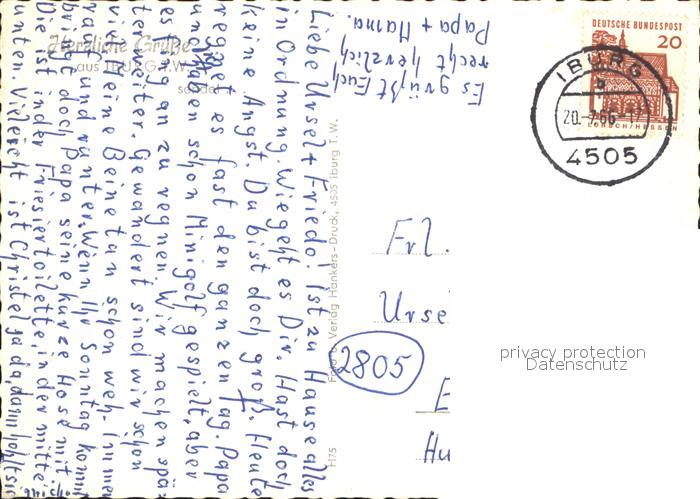 Herzliche Grüße
aus IBURG T.W.
sendet
Liebe Ursel + Friedo! Ist zu Hause alles
in Ordnung. Wie geht es Dir. Hast doch
keine Angst. Du bist doch groß. Heute
regnet es fast den ganzen Tag. Papa
und ich haben schon Minigolf gespielt, aber
es fing an zu regnen. Wir machen spä-
ter weiter. Gewandert sind wir schon
Meine Beine tan schon weh. Immer
rauf und runter. Wenn Ihr Sonntag kommt
bringt doch Papa seine kurze Hose mit.
Die ist in der Frisiertoilette, in der mitte
unten. Vileicht ist Christel ja da, dann holt sie
Es grüßt Euch
recht herzlich
Papa + Hanna.
H75
Foto u. Verlag Hankers-Druck, 4505 Iburg T.W.
DEUTSCHE BUNDESPOST
20
LORSCH/HESSEN
IBURG
20.-7.66-17
4505
Frl.
Urse
2805
E
Hu
privacy protection
Datenschutz